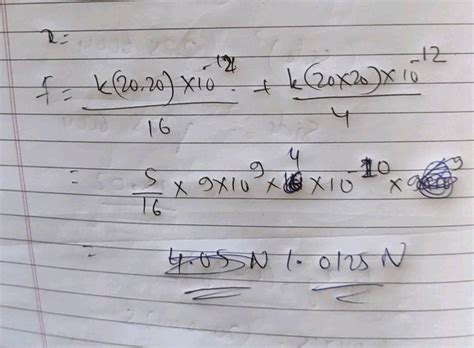 r =
f = k(20.20) × 10⁻¹² / 16 + k(20×20) × 10⁻¹² / 4
= 5/16 × 9×10⁹ × 4 × 10⁻¹⁰ × 9
= 4.05 N 1.0125 N